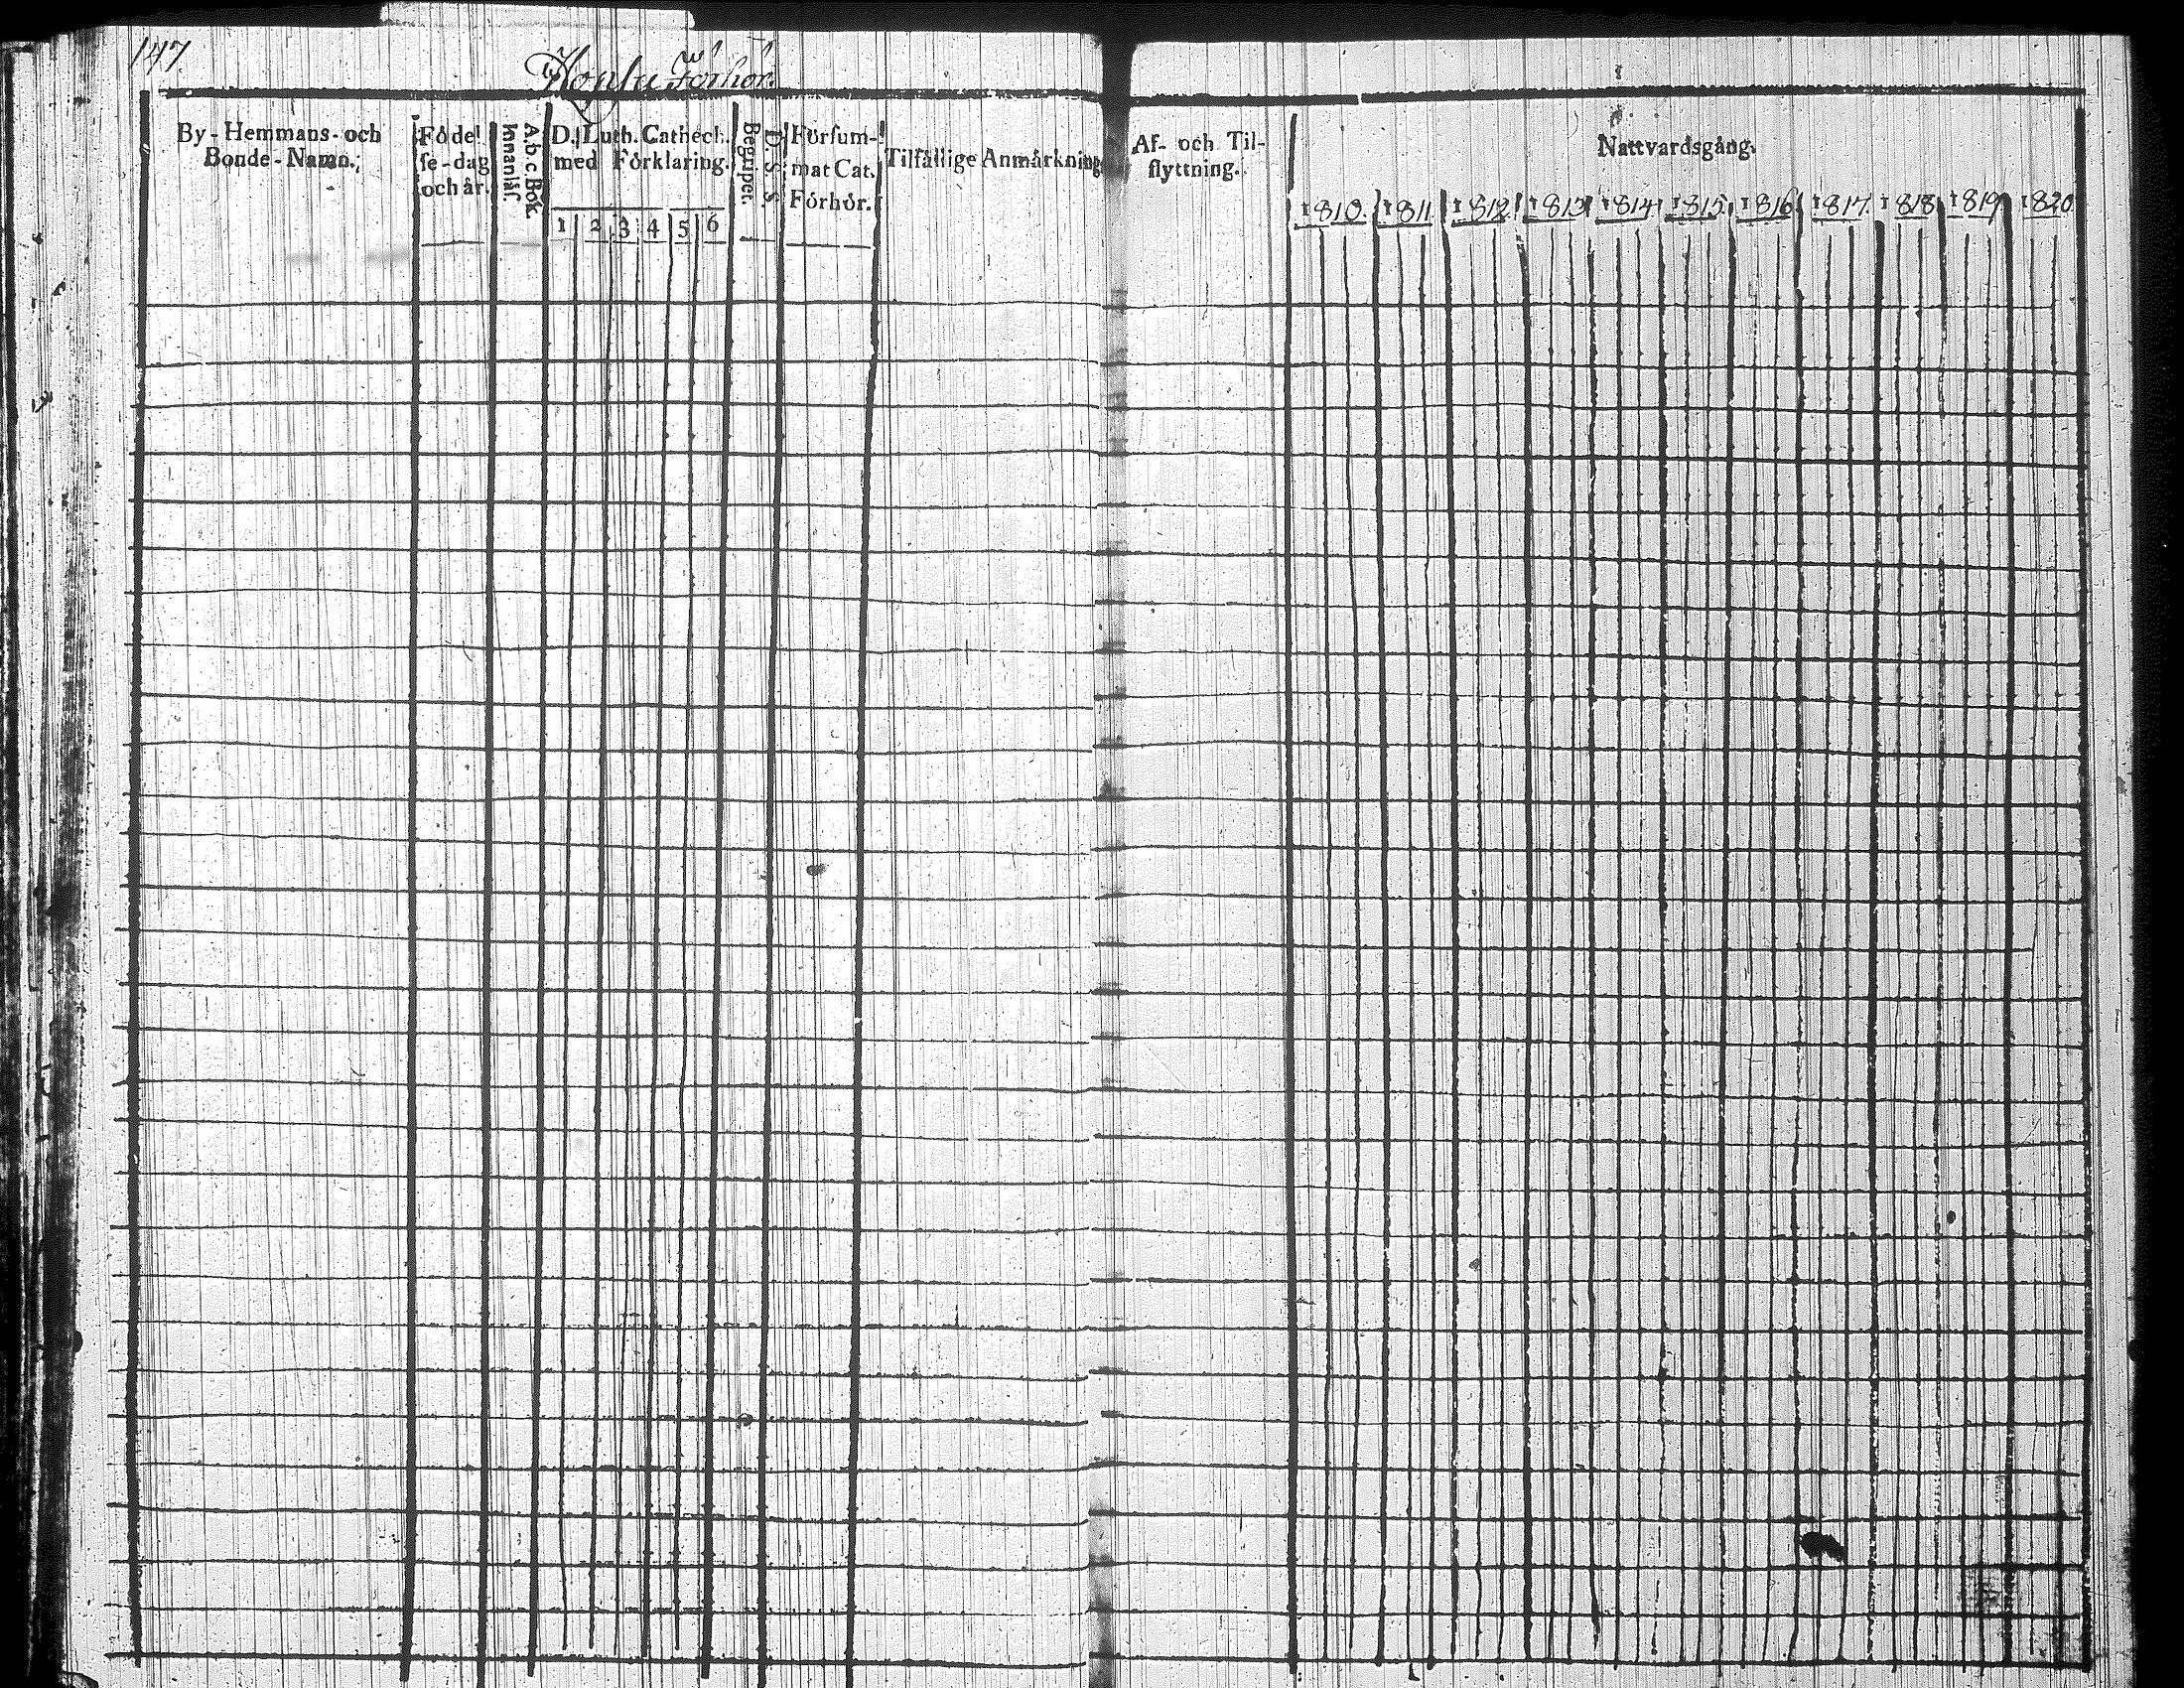 147
Förhör.
By-Hemmans- och
Bonde-Namn.
Födel
se-dag
och år.
A.b.c.Bok.
Innanläs.
D. Luth. Cathech.
med Förklaring.
1 2 3 4 5 6
D. S. S.
Begriper.
Försum-
mat Cat.
Förhör.
Tilfällige Anmärkning
Af- och Til-
flyttning.
Nattvardsgång.
1810. 1811 1812 1813 1814 1815 1816 1817. 1818 1819 1820